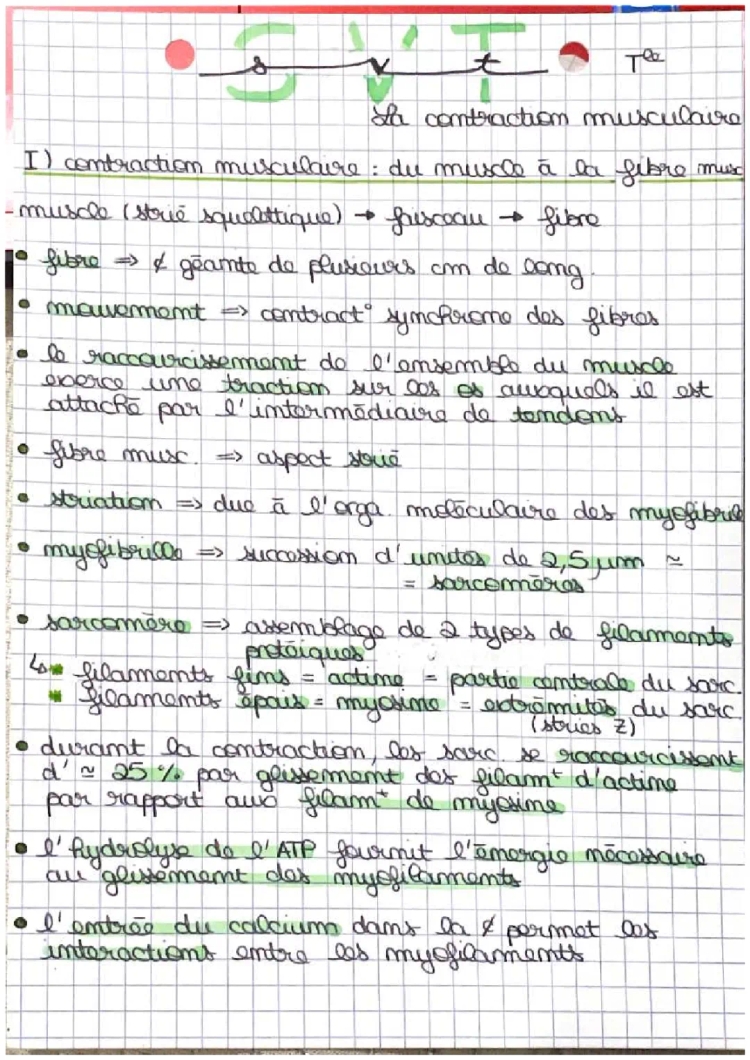 S V T
s v t Tle
La contraction musculaire
I) contraction musculaire : du muscle à la fibre musc
muscle (strié squelettique) → faisceau → fibre
• fibre ⇒ ¢ géante de plusieurs cm de long.
• mouvement ⇒ contract° synchrone des fibres
• le raccourcissement de l'ensemble du muscle
exerce une traction sur les os auxquels il est
attaché par l'intermédiaire de tendons
• fibre musc. ⇒ aspect strié
• striation ⇒ due à l'orga. moléculaire des myofibrill
• myofibrille ⇒ succession d'unités de 2,5 μm ≃
= sarcomères
• sarcomère ⇒ assemblage de 2 types de filaments
protéiques
↳ filaments fins = actine = partie centrale du sarc.
filaments épais = myosine = extrémités du sarc
(stries Z)
• durant la contraction, les sarc. se raccourcissent
d' ≃ 25 % par glissement des filamt d'actine
par rapport aux filamt de myosine
• l'hydrolyse de l'ATP fournit l'énergie nécessaire
au glissement des myofilaments
• l'entrée du calcium dans la ¢ permet les
interactions entre les myofilaments